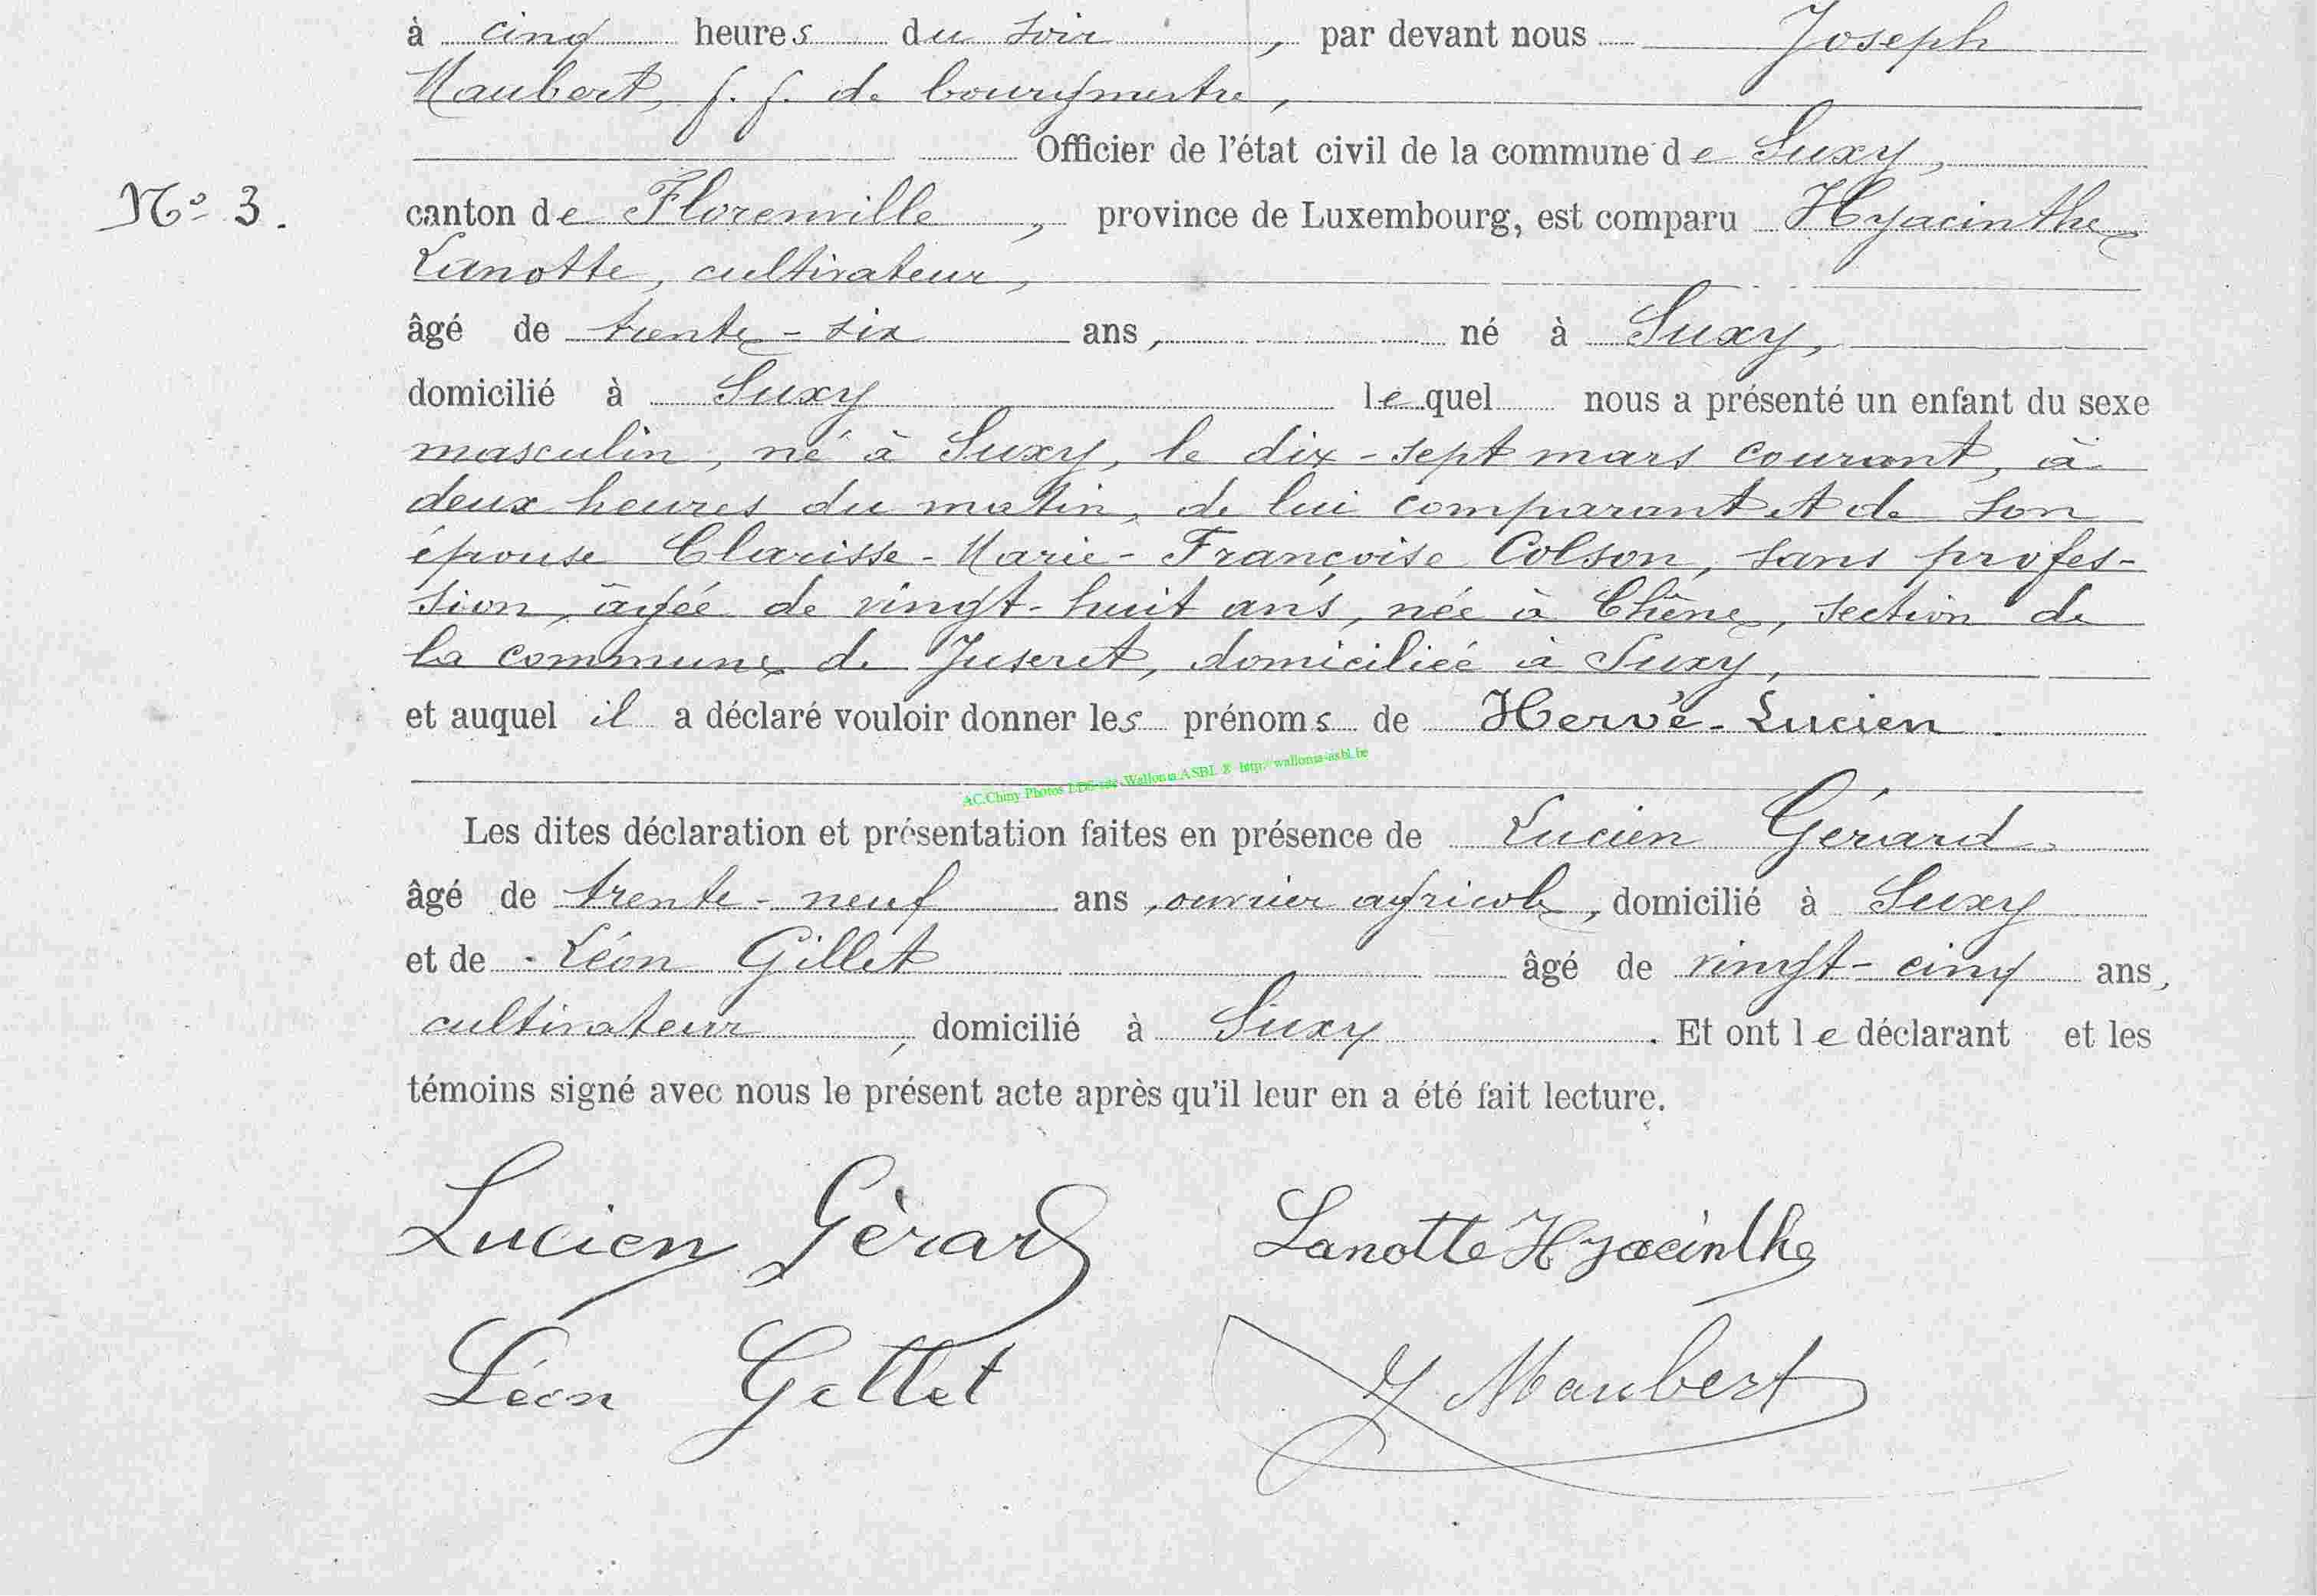 à cinq heures du soir, par devant nous Joseph
Maubert, f. f. de bourgmestre,
Officier de l'état civil de la commune de Suxy,
N° 3.
canton de Florenville, province de Luxembourg, est comparu Hyacinthe
Lanotte, cultivateur,
âgé de trente-six ans, né à Suxy,
domicilié à Suxy lequel nous a présenté un enfant du sexe
masculin, né à Suxy, le dix-sept mars courant, à
deux heures du matin, de lui comparant et de son
épouse Clarisse-Marie-Françoise Colson, sans profes-
sion, âgée de vingt-huit ans, née à Chêne, section de
la commune de Juseret, domiciliée à Suxy,
et auquel il a déclaré vouloir donner les prénoms de Hervé-Lucien.
AC.Chiny Photos Wallonia ASBL & http://wallonia-asbl.be
Les dites déclaration et présentation faites en présence de Lucien Gérard
âgé de trente-neuf ans, ouvrier agricole, domicilié à Suxy
et de Léon Gillet âgé de vingt-cinq ans,
cultivateur, domicilié à Suxy. Et ont le déclarant et les
témoins signé avec nous le présent acte après qu'il leur en a été fait lecture.
Lucien Gérard Lanotte Hyacinthe
Léon Gillet J Maubert